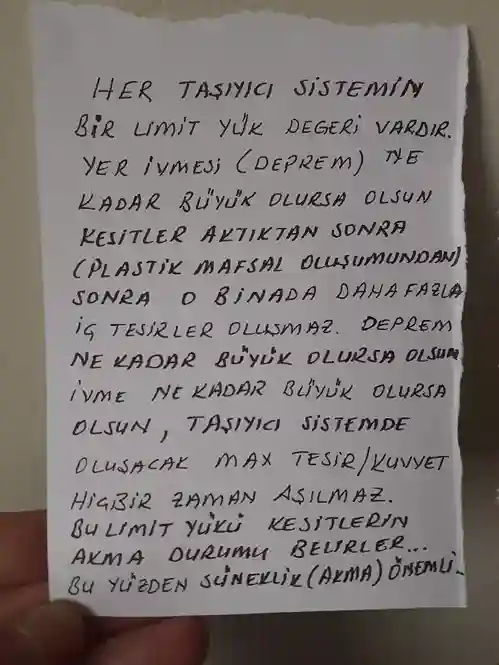 HER TAŞIYICI SİSTEMİN
BİR LIMIT YÜK DEGERİ VARDIR.
YER İVMESİ (DEPREM) NE
KADAR BÜYÜK OLURSA OLSUN
KESİTLER AKTIKTAN SONRA
(PLASTİK MAFSAL OLUŞUMUNDAN)
SONRA O BİNADA DAHA FAZLA
İÇ TESİRLER OLUŞMAZ. DEPREM
NE KADAR BÜYÜK OLURSA OLSUN
İVME NE KADAR BÜYÜK OLURSA
OLSUN, TAŞIYICI SİSTEMDE
OLUŞACAK MAX TESİR/KUVVET
HİÇBİR ZAMAN AŞILMAZ.
BU LIMIT YÜKÜ KESİTLERİN
AKMA DURUMU BELİRLER...
BU YÜZDEN SÜNEKLİK (AKMA) ÖNEMLİ..